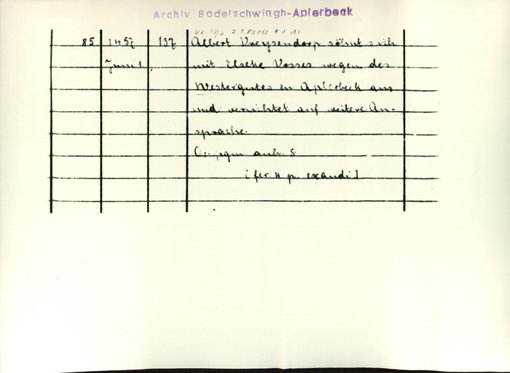 Archiv Bodelschwingh-Aplerbeck
85 1457 137 Albert Vreysendorp söhnt sich
Juni 1. mit Elseke Vosses wegen des
Westergutes in Aplerbeck aus
und verzichtet auf weitere An-
sprache.
anh. S
[fer 4 p. exaudi]